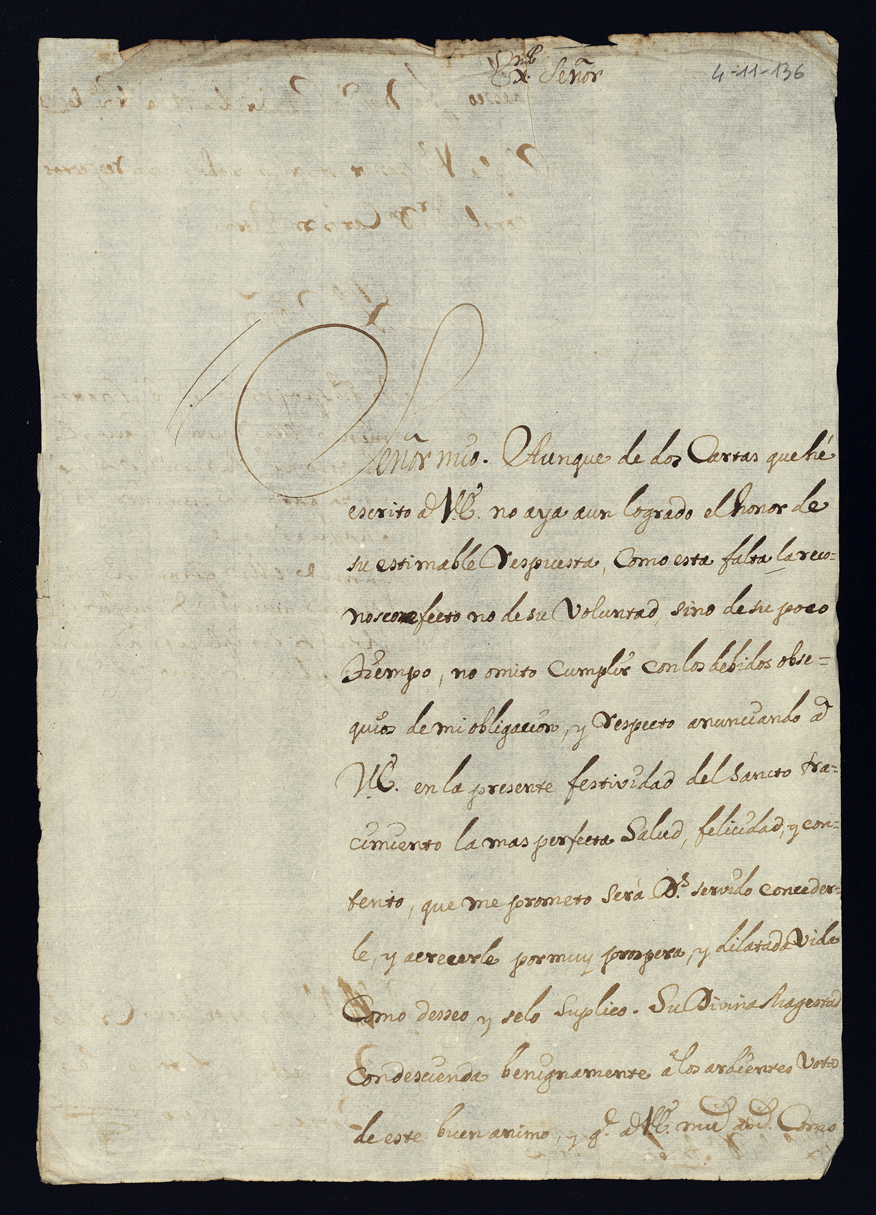 Ex.mo Señor
4-11-136
Señor mio. Aunque de dos Cartas que hé
escrito a V.E. no aya aun logrado el honor de
su estimable respuesta, Como esta falta la reco-
nosco efecto no de su Voluntad, sino de su poco
tiempo, no omito Cumplir con los debidos obse=
quios de mi obligacion, y respecto anunciando a
V.E. en la presente festividad del Sancto Na=
cimiento la mas perfecta Salud, felicidad, y con=
tento, que me prometo será D.s servido conceder=
le, y acrecerle por muy prospera, y dilatada Vida
Como desseo y selo suplico. Su Divina Magestad
condescienda benignamente á los ardientes Votos
de este buen animo, y g.e a V.E. mu.s a.s Como